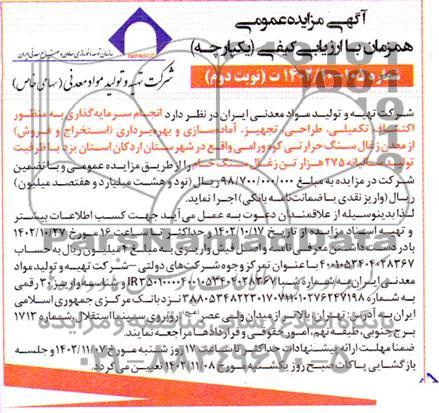 آگهی مزایده عمومی
همزمان با ارزیابی کیفی (یکپارچه)
IMPASCO
شرکت تهیه و تولید مواد معدنی (سهامی خاص)
ت (نوبت دوم)
شرکت تهیه و تولید مواد معدنی ایران در نظر دارد انجام سرمایه گذاری به منظور
اکتشاف تکمیلی، طراحی، تجهیز، آماده‌سازی و بهره‌برداری (استخراج و فروش)
از معدن زغال سنگ حرارتی کوه ورامی واقع در شهرستان اردکان استان یزد با ظرفیت
تولید سالیانه ۲۷۵ هزار تن زغال سنگ خام را از طریق مزایده عمومی و با تضمین
شرکت در مزایده به مبلغ ۹۸/۷۰۰/۰۰۰/۰۰۰ ریال (نود و هشت میلیارد و هفتصد میلیون)
ریال (واریز نقدی یا ضمانت‌نامه بانکی) اجرا نماید.
لذا بدینوسیله از علاقمندان دعوت به عمل می‌آید جهت کسب اطلاعات بیشتر
و تهیه اسناد مزایده از تاریخ ۱۴۰۲/۱۰/۱۷ و حداکثر تا ساعت ۱۶ مورخ ۱۴۰۲/۱۰/۲۷
با در دست داشتن معرفی نامه و اصل فیش واریزی به مبلغ ۴ میلیون ریال به حساب
با عنوان تمرکز وجوه شرکت‌های دولتی – شرکت تهیه و تولید مواد
معدنی ایران به شماره شبا و شناسه واریز ۳۰ رقمی
به شماره نزد بانک مرکزی جمهوری اسلامی
ایران به آدرس: تهران، بالاتر از میدان ولی عصر روبروی سینما استقلال، شماره ۱۷۱۳
برج جنوبی، طبقه نهم، امور حقوقی و قراردادها مراجعه نمایند.
ضمنا مهلت ارائه پیشنهادات حداکثر تا ساعت ۱۷ روز شنبه مورخ ۱۴۰۲/۱۱/۰۷ و جلسه
بازگشایی پاکات صبح روز یکشنبه مورخ ۱۴۰۲/۱۱/۰۸ تعیین می گردد.